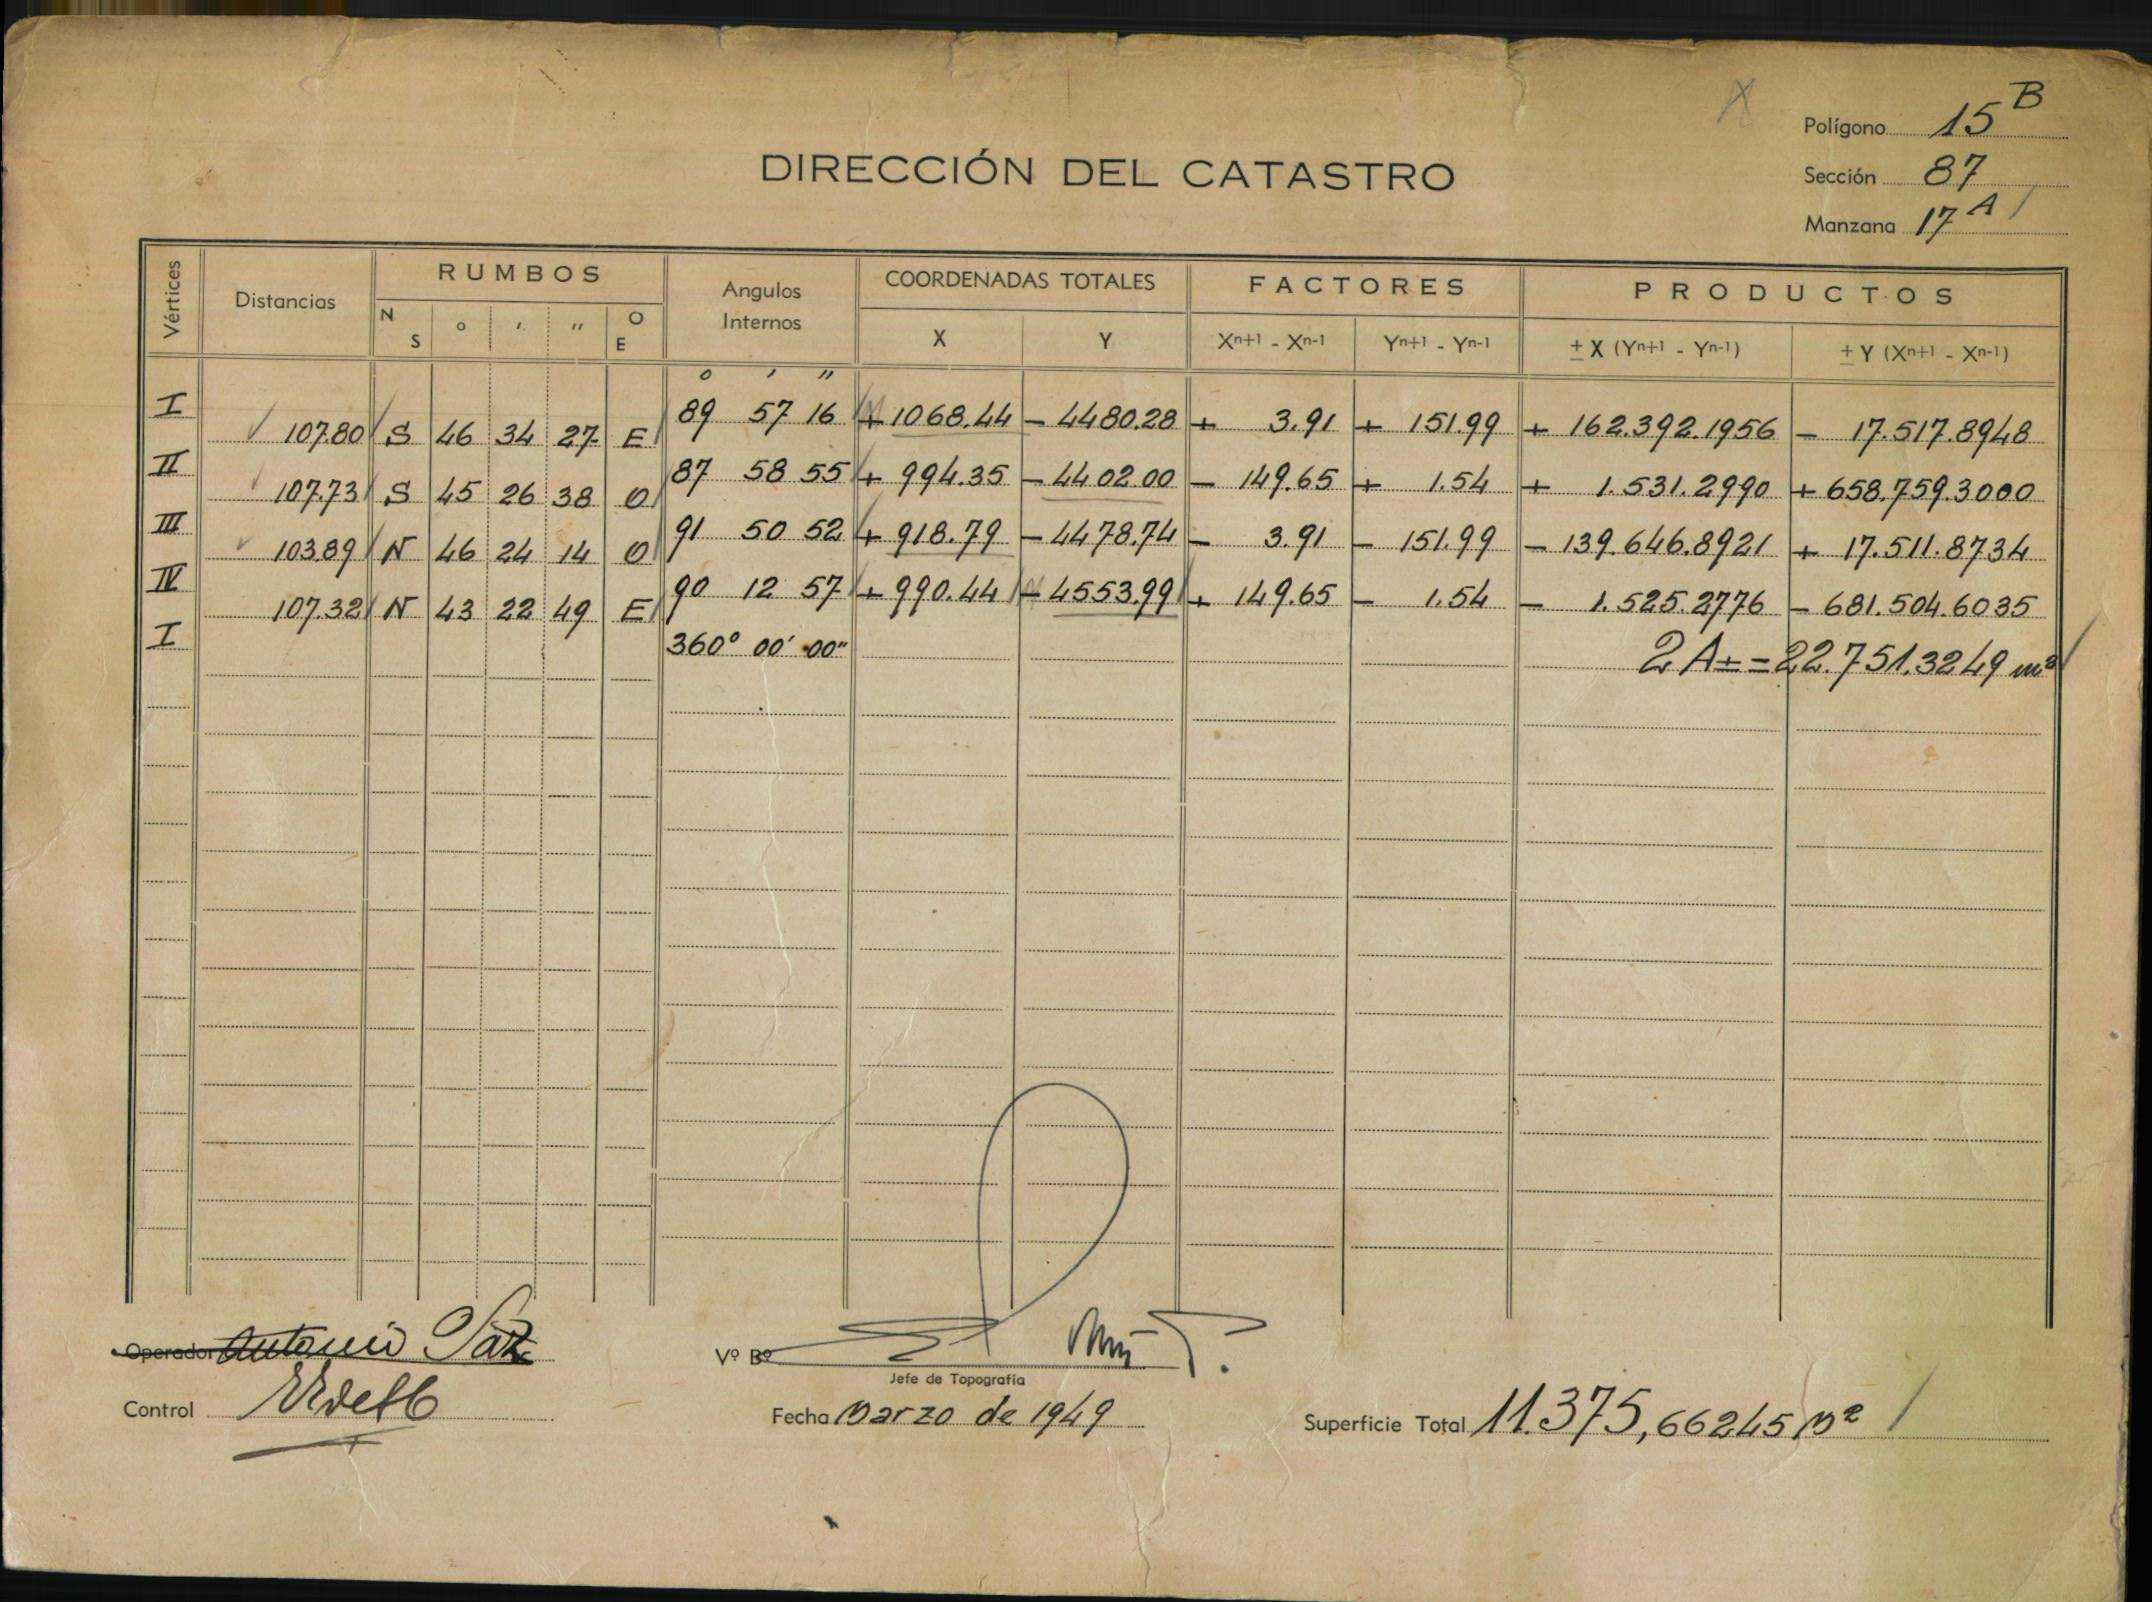 Polígono 15 B
DIRECCIÓN DEL CATASTRO
Sección 87
Manzana 17 A
Vértices Distancias RUMBOS Angulos Internos COORDENADAS TOTALES FACTORES PRODUCTOS
N S ° ' " O E X Y Xn+1 - Xn-1 Yn+1 - Yn-1 ± X (Yn+1 - Yn-1) ± Y (Xn+1 - Xn-1)
° ' "
I 107.80 S 46 34 27 E 89 57 16 + 1068.44 - 4480.28 + 3.91 + 151.99 + 162.392.1956 - 17.517.8948
II 107.73 S 45 26 38 O 87 58 55 + 994.35 - 4402.00 - 149.65 + 1.54 + 1.531.2990 + 658.759.3000
III 103.89 N 46 24 14 O 91 50 52 + 918.79 - 4478.74 - 3.91 - 151.99 - 139.646.8921 + 17.511.8734
IV 107.32 N 43 22 49 E 90 12 57 + 990.44 - 4553.99 + 149.65 - 1.54 - 1.525.2776 - 681.504.6035
I 360° 00' 00" 2 A ± = 22.751.3249 m²
Operador Antonio
Vº Bº
Jefe de Topografía
Control
Fecha Marzo de 1949
Superficie Total 11.375,66245 M²